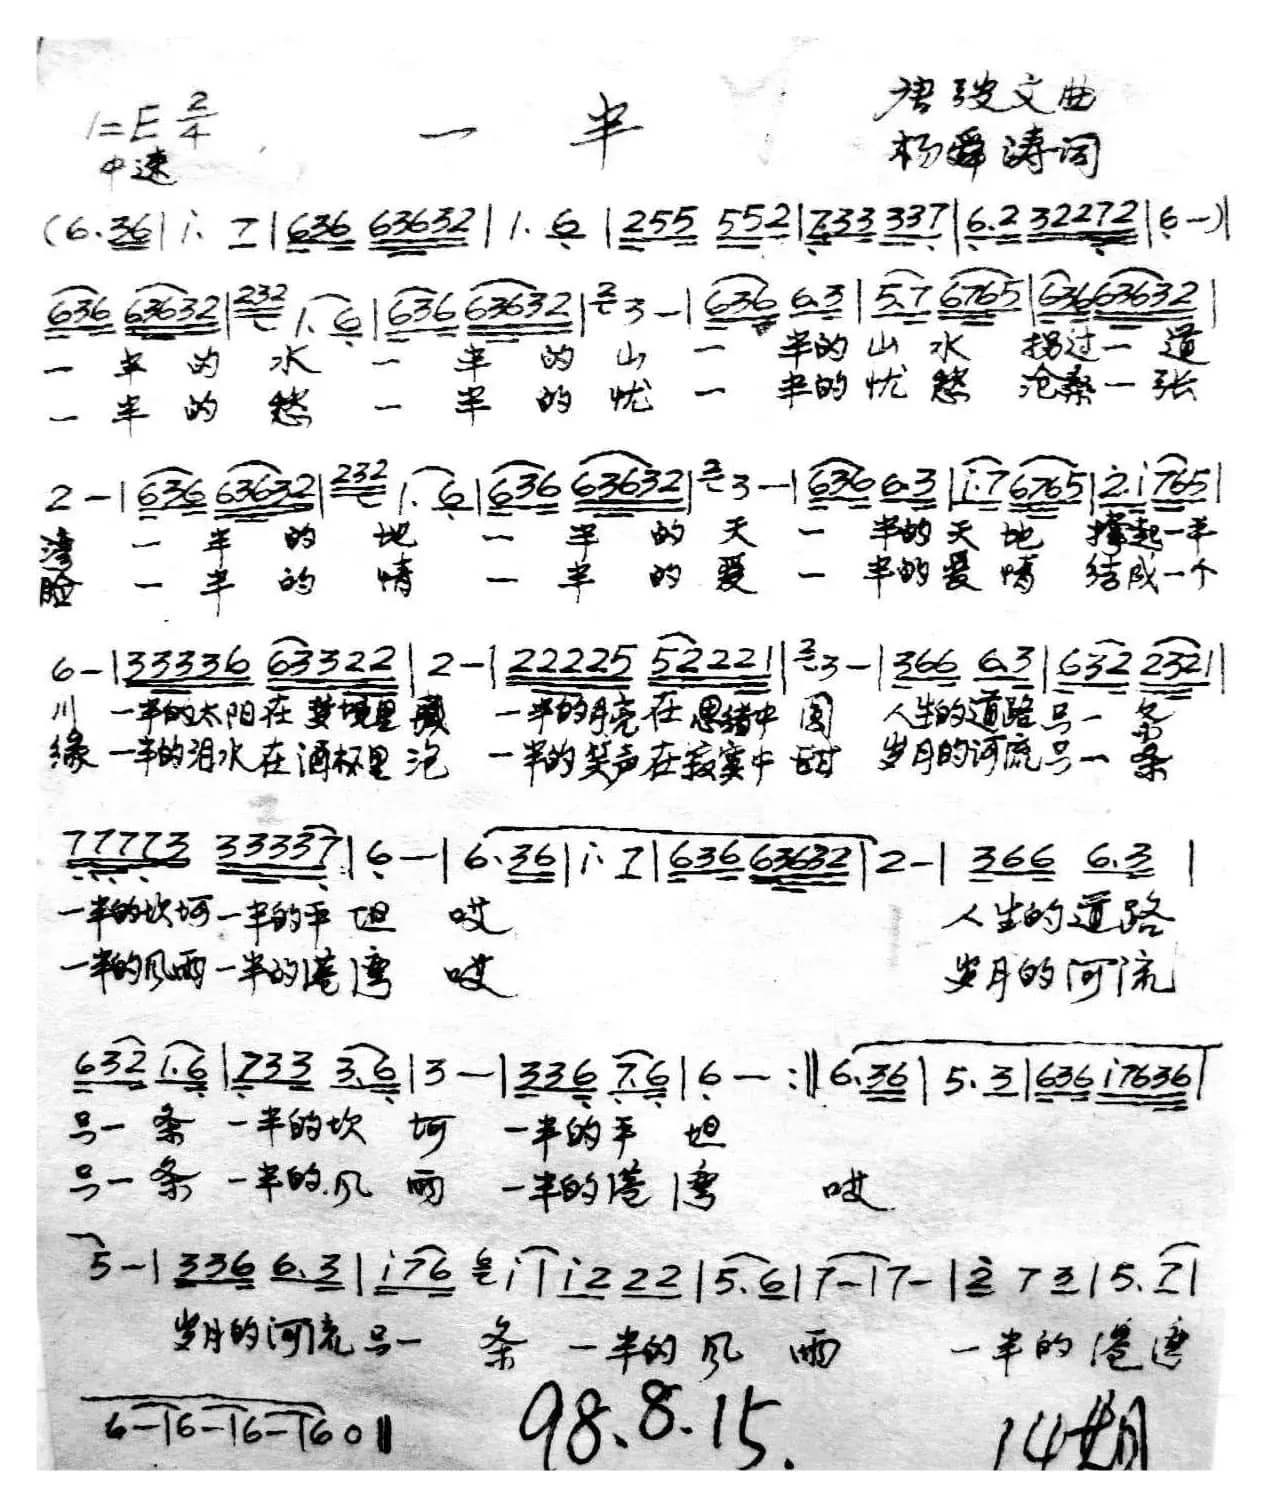 1=E 2/4 一半 唐跛文曲
中速 杨舜涛词
(6.36|i. 7|636 63632|1. 6|255 552|733 337|6.2 32272|6-)|
636 63632|232 1.6|636 63632|2 3-|636 6.3|5.7 6765|636 63632|
一半的水一半的山一半的山水拐过一道
一半的愁一半的忧一半的忧愁沧桑一张
2-|636 63632|232 1.6|636 63632|2 3-|636 6.3|i.7 6765|2.i 765|
湾一半的地一半的天一半的天地撑起一半
脸一半的情一半的爱一半的爱情结成一个
6-|33336 63322|2-|22225 52221|2 3-|366 6.3|632 2321|
川一半的太阳在梦境里藏一半的月亮在思绪中圆人生的道路只一条
缘一半的泪水在酒杯里泡一半的笑声在寂寞中甜岁月的河流只一条
77773 33337|6-|6.36|i. 7|636 63632|2-|366 6.3|
一半的坎坷一半的平坦哎人生的道路
一半的风雨一半的港湾哎岁月的河流
632 1.6|733 3.6|3-|336 7.6|6-:‖6.36|5.3|636 i7636|
只一条一半的坎坷一半的平坦
只一条一半的风雨一半的港湾哎
5-|336 6.3|i76 6 i|i2 22|5.6|7-|7-|2 7 2|5.7|
岁月的河流只一条一半的风雨一半的港湾
6-|6-|6-|60‖ 98.8.15. 14期